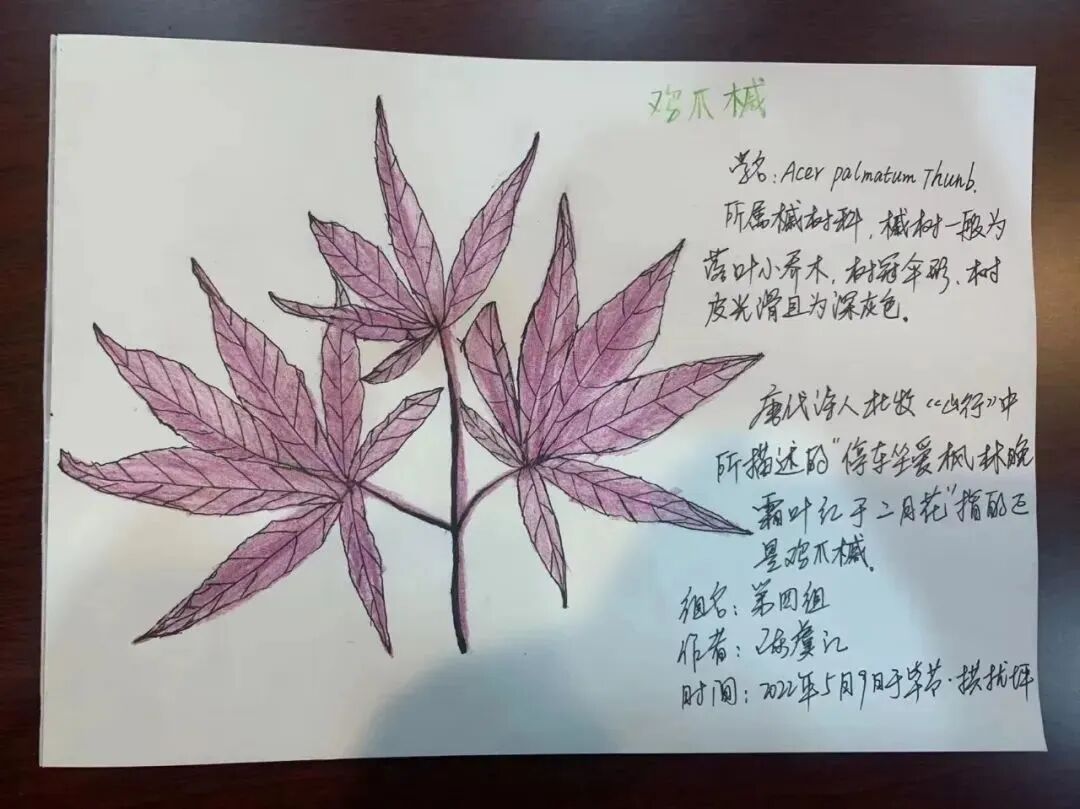 鸡爪槭
学名:Acer palmatum Thunb.
所属槭树科,槭树一般为
落叶小乔木,树冠伞形,树
皮光滑且为深灰色。
唐代诗人杜牧《山行》中
所描述的"停车坐爱枫林晚
霜叶红于二月花"指的正
是鸡爪槭。
组名:第四组
作者:虞江
时间:2022年5月9日于毕节·拱拢坪